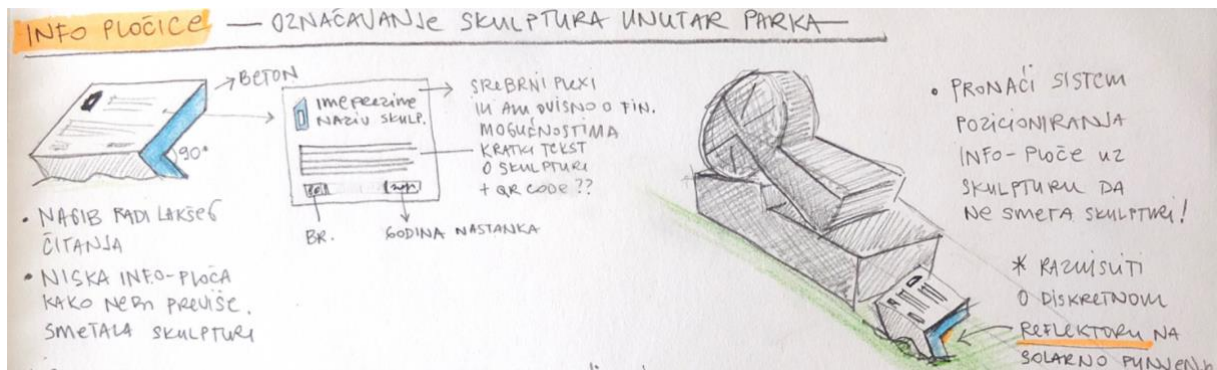 INFO PLOČICE — OZNAČAVANJE SKULPTURA UNUTAR PARKA
BETON
90°
• NAGIB RADI LAKŠEG
ČITANJA
• NISKA INFO-PLOČA
KAKO NEBI PREVIŠE.
SMETALA SKULPTURI
IME PREZIME
NAZIV SKULP.
BR.
GODINA NASTANKA
SREBRNI PLEXI
ILI ALU OVISNO O FIN.
MOGUĆNOSTIMA
KRATKI TEKST
O SKULPTURI
+ QR CODE ??
• PRONAĆI SISTEM
POZICIONIRANJA
INFO-PLOČE UZ
SKULPTURU DA
NE SMETA SKULPTURI!
* RAZMISLITI
O DISKRETNOM
REFLEKTORU NA
SOLARNO